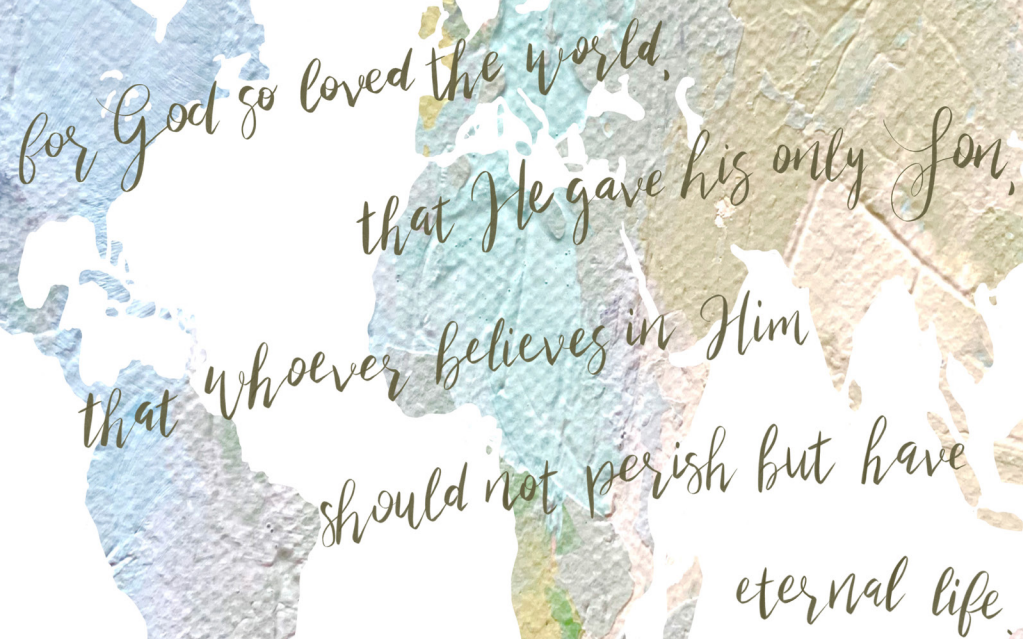 for God so loved the world,
that He gave his only Son,
that whoever believes in Him
should not perish but have
eternal life.